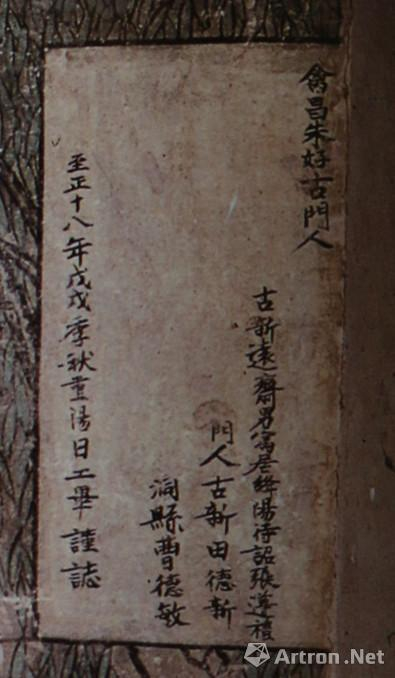 禽昌朱好古門人
古新遠齋男寓居絳陽待詔張遵禮
門人古新田德新
洞縣曹德敏
至正十八年戊戌季秋重陽日工畢謹誌
Artron.Net